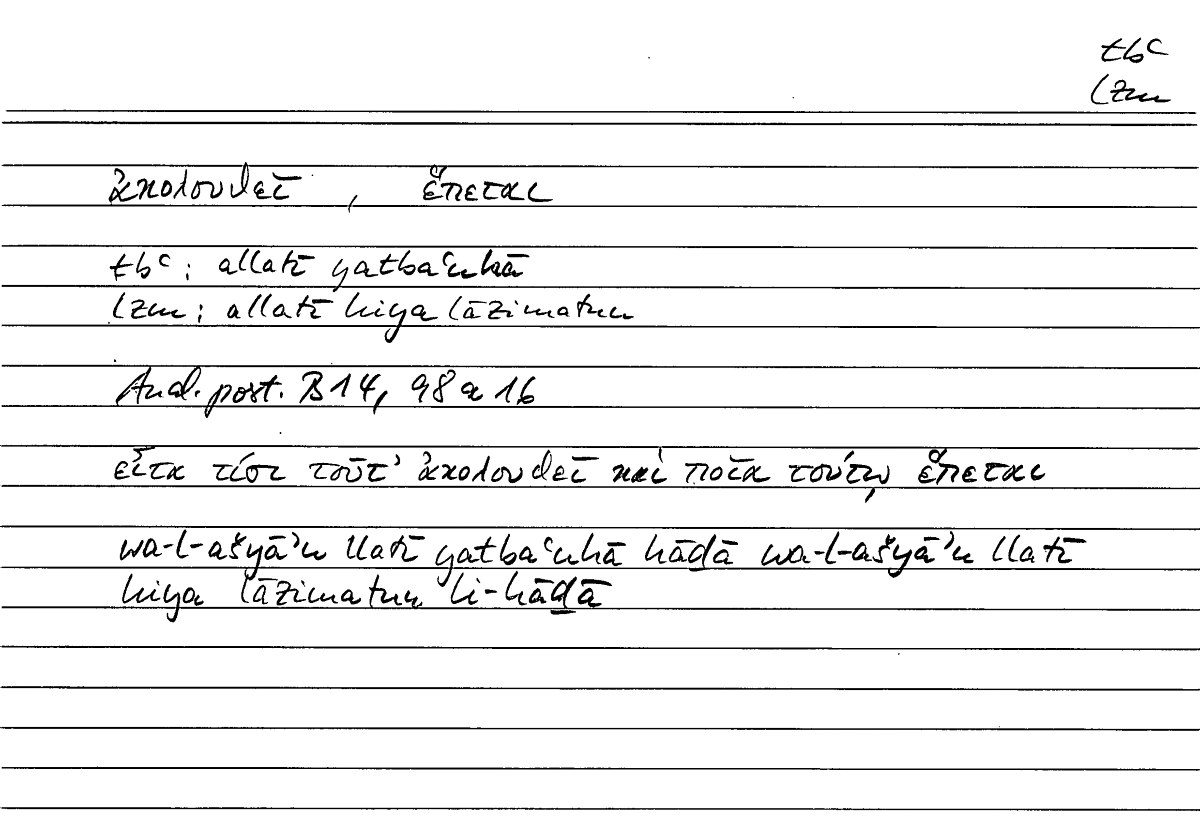 tbᶜ
lzm
ἀκολουθεῖ, ἕπεται
tbᶜ: allatī yatbaʿuhā
lzm: allatī hiya lāzimatun
Anal. post. B 14, 98 a 16
εἶτα τίσι τοῦτ' ἀκολουθεῖ καὶ ποῖα τούτῳ ἕπεται
wa-l-ašyāʾu llatī yatbaʿuhā hāḏā wa-l-ašyāʾu llatī
hiya lāzimatun li-hāḏā